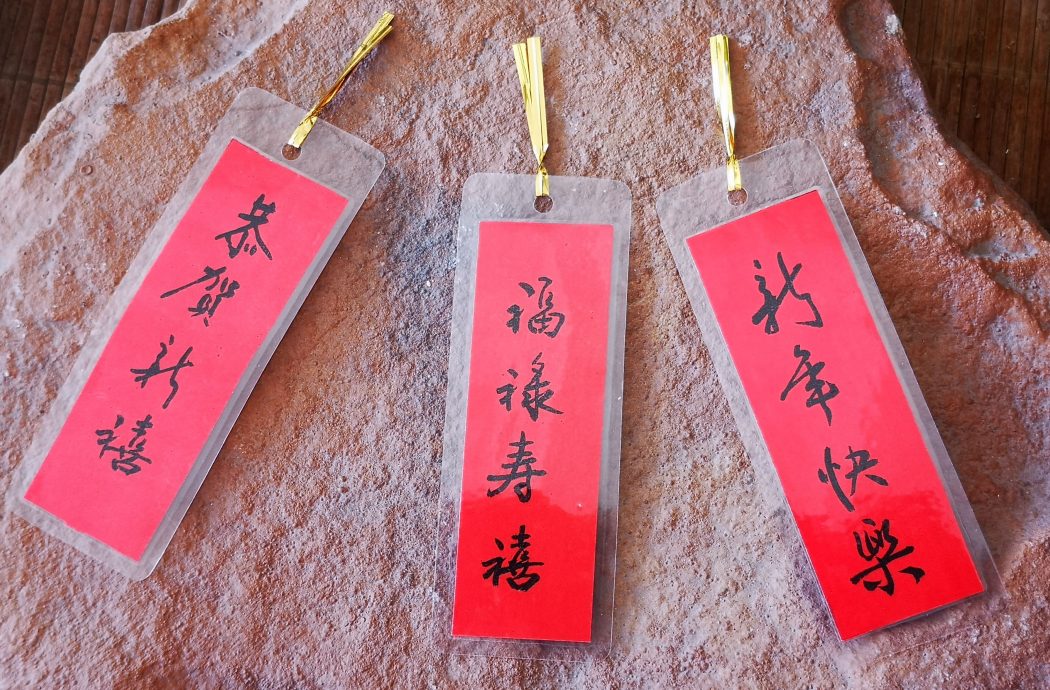 恭賀新禧
福禄寿禧
新年快樂